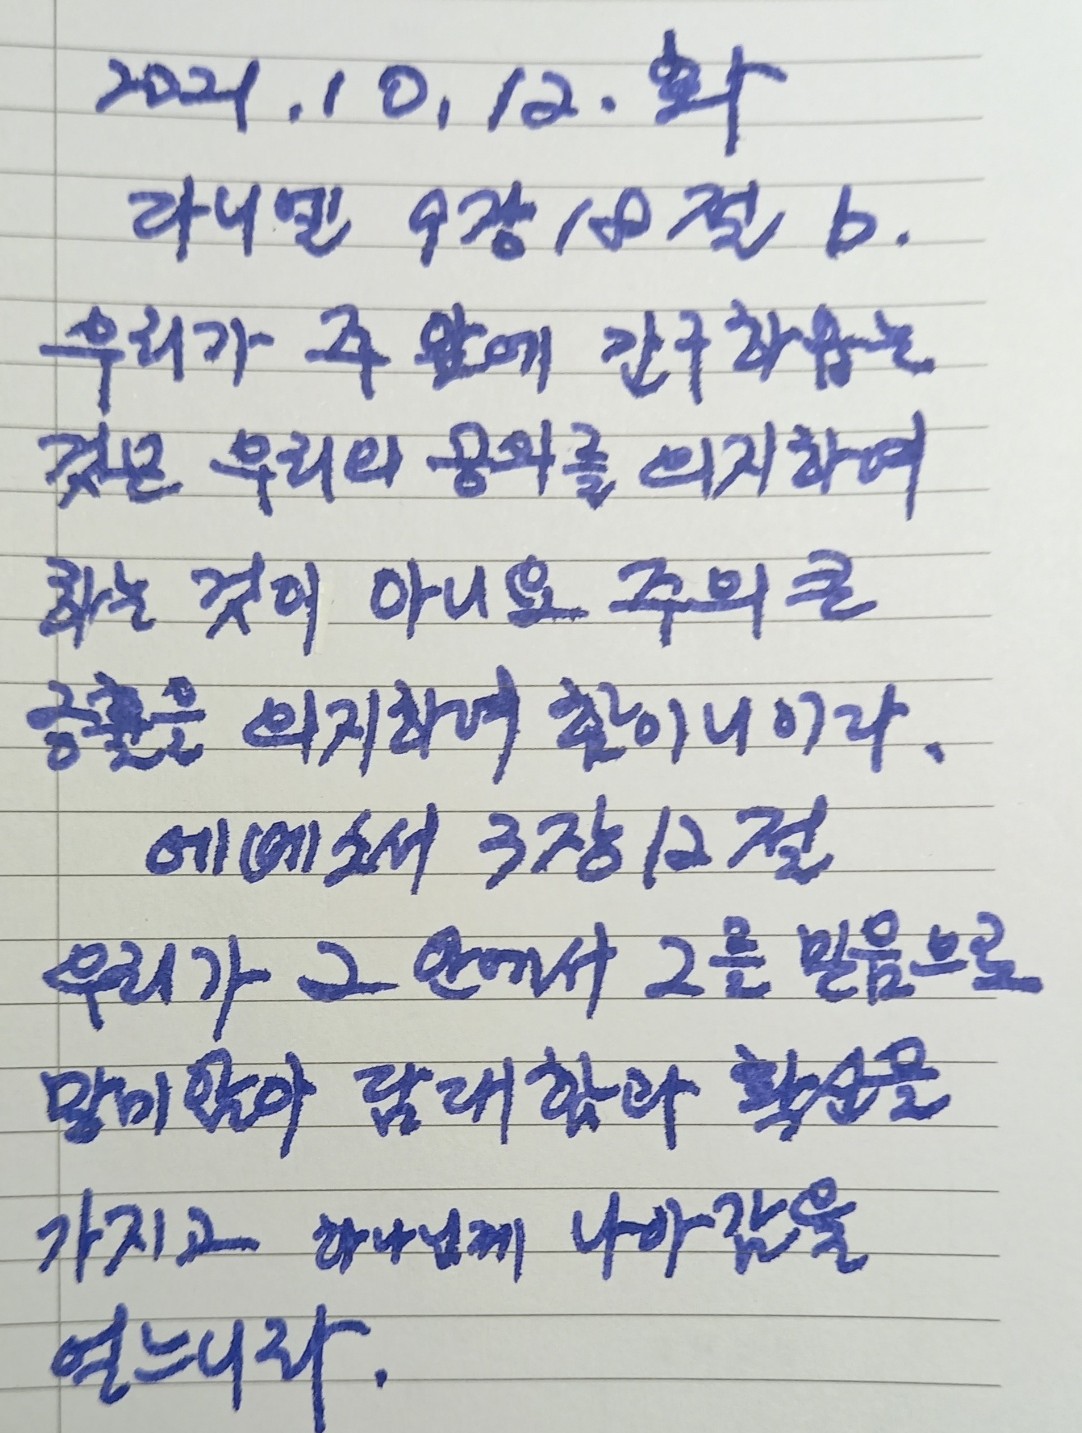 2021.10.12. 화
다니엘 9장 18절 b.
우리가 주 앞에 간구하옵는
것은 우리의 공의를 의지하여
하는 것이 아니요 주의 큰
긍휼을 의지하여 함이니이다.
에베소서 3장 12절
우리가 그 안에서 그를 믿음으로
말미암아 담대함과 확신을
가지고 하나님께 나아감을
얻느니라.